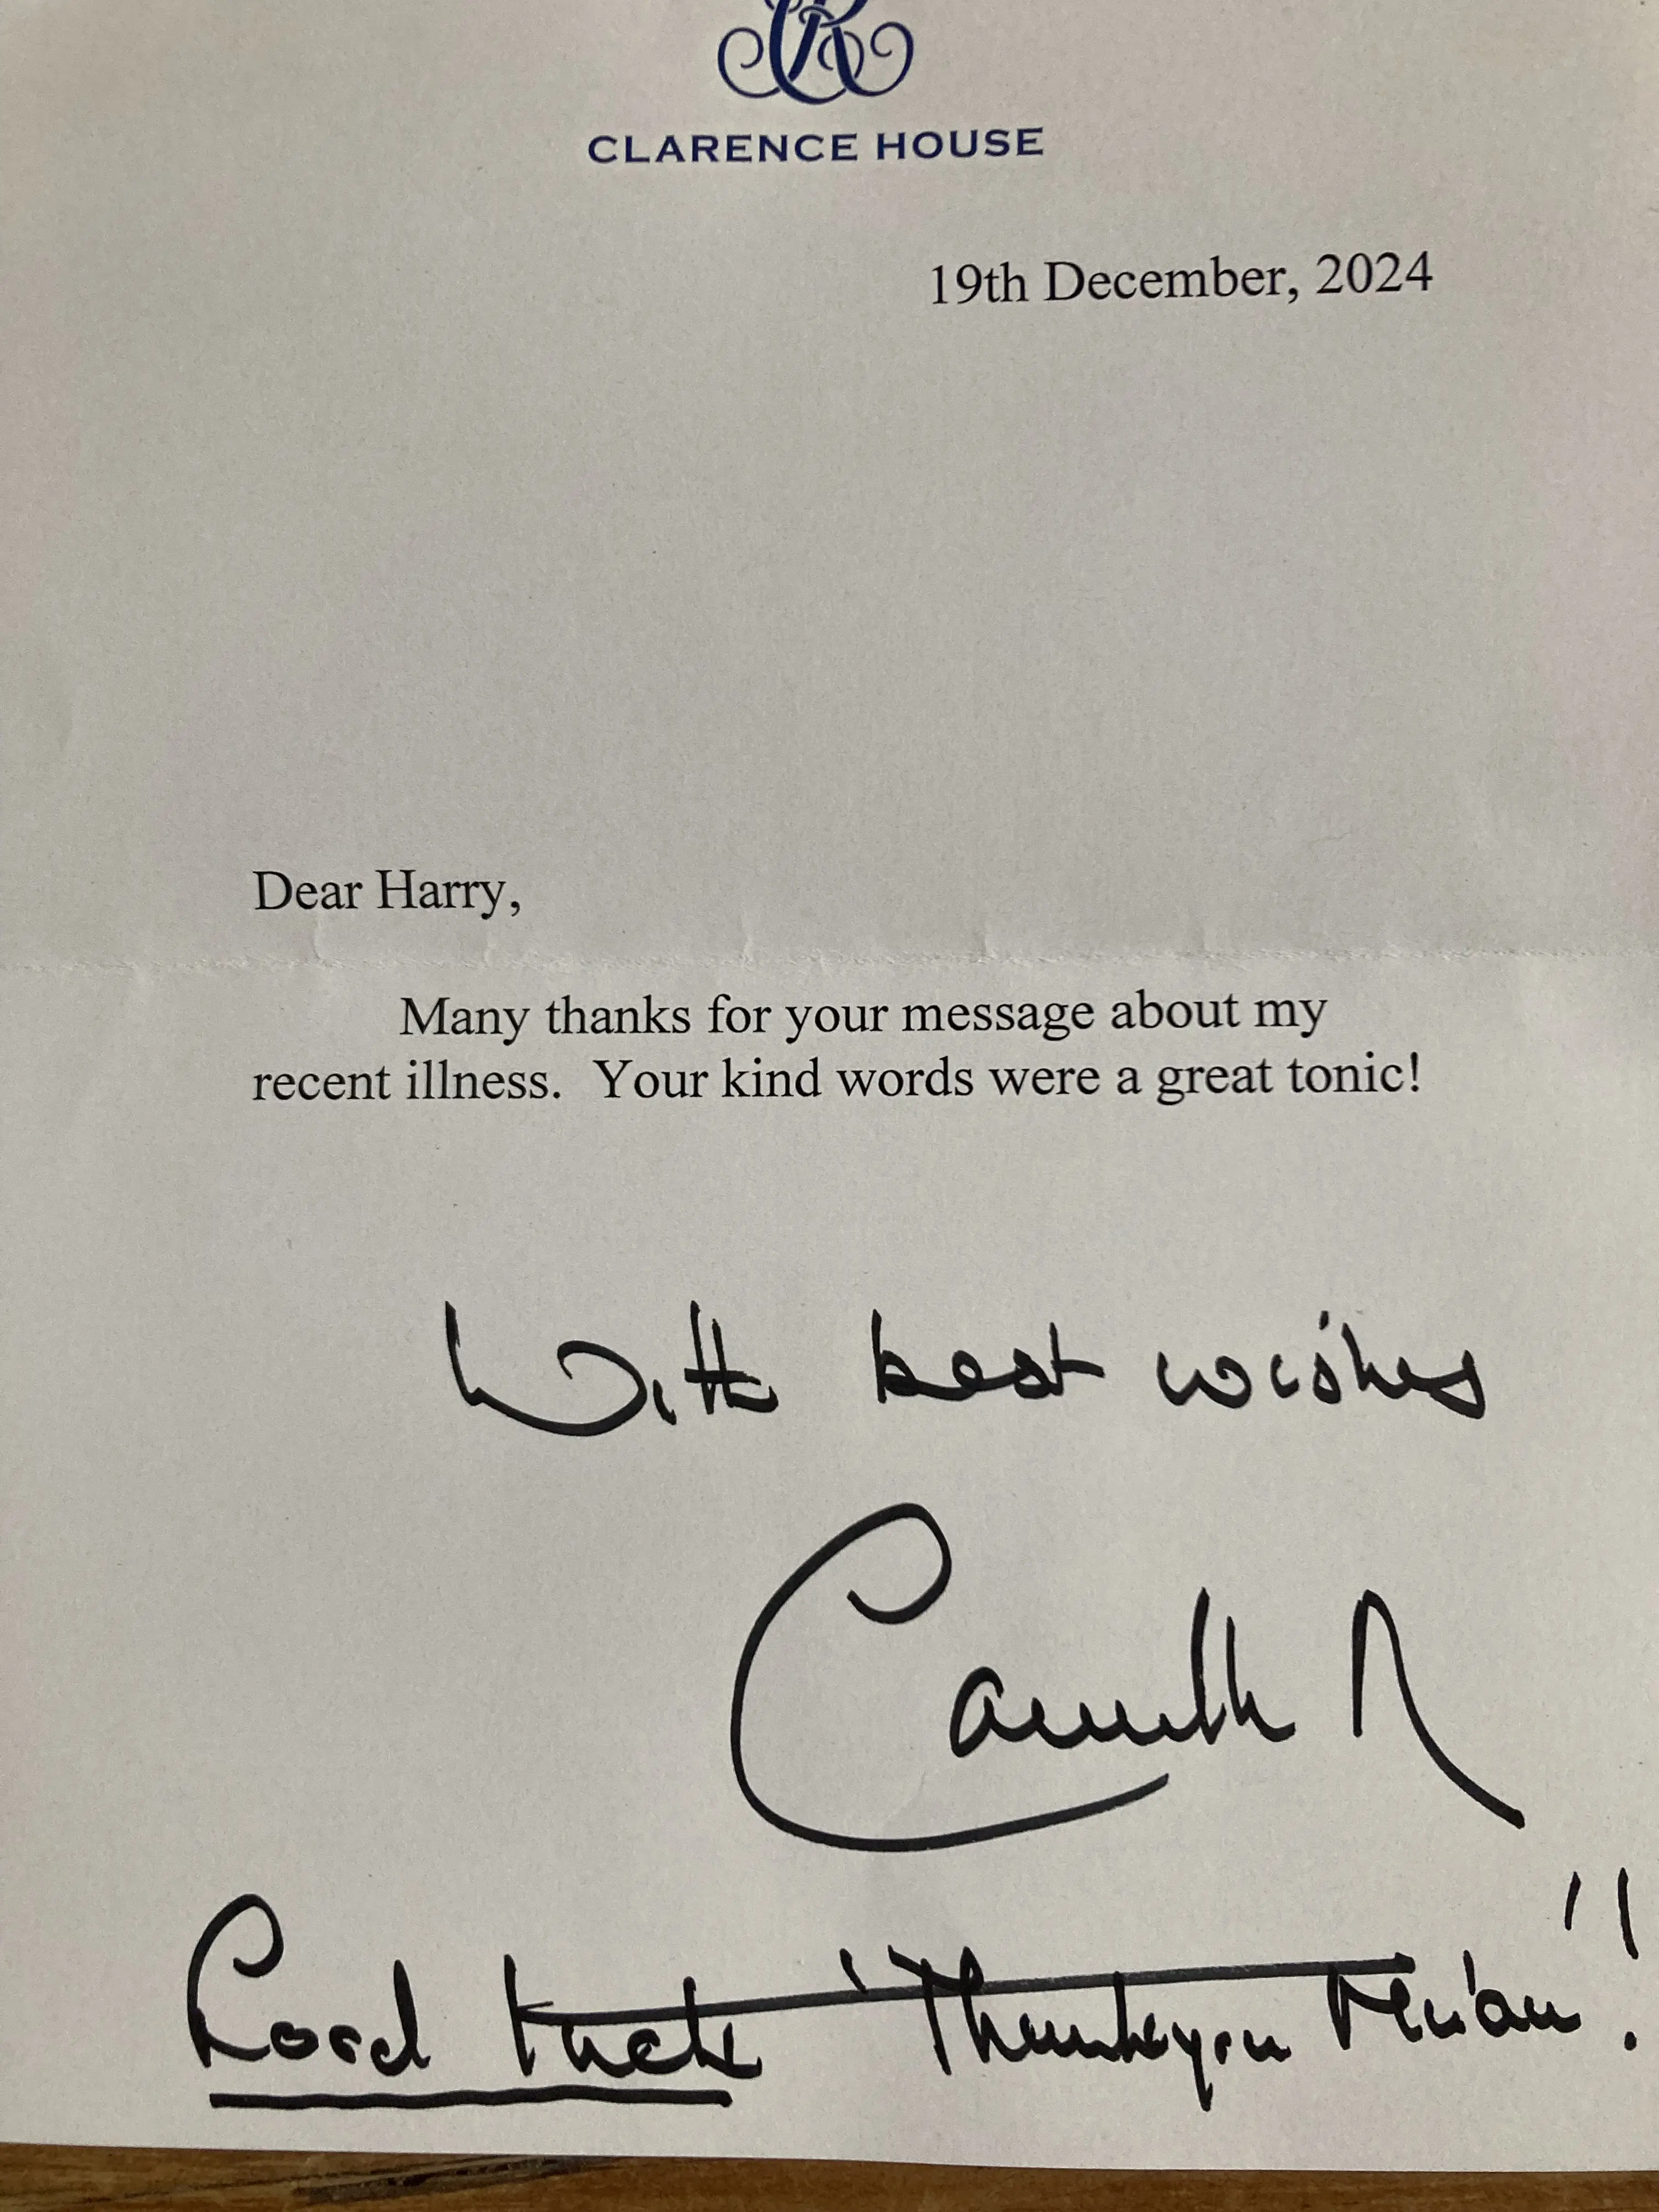 CR
CLARENCE HOUSE
19th December, 2024
Dear Harry,
Many thanks for your message about my
recent illness. Your kind words were a great tonic!
With best wishes
Camilla R
Good luck 'Thankyou Ma'am'!